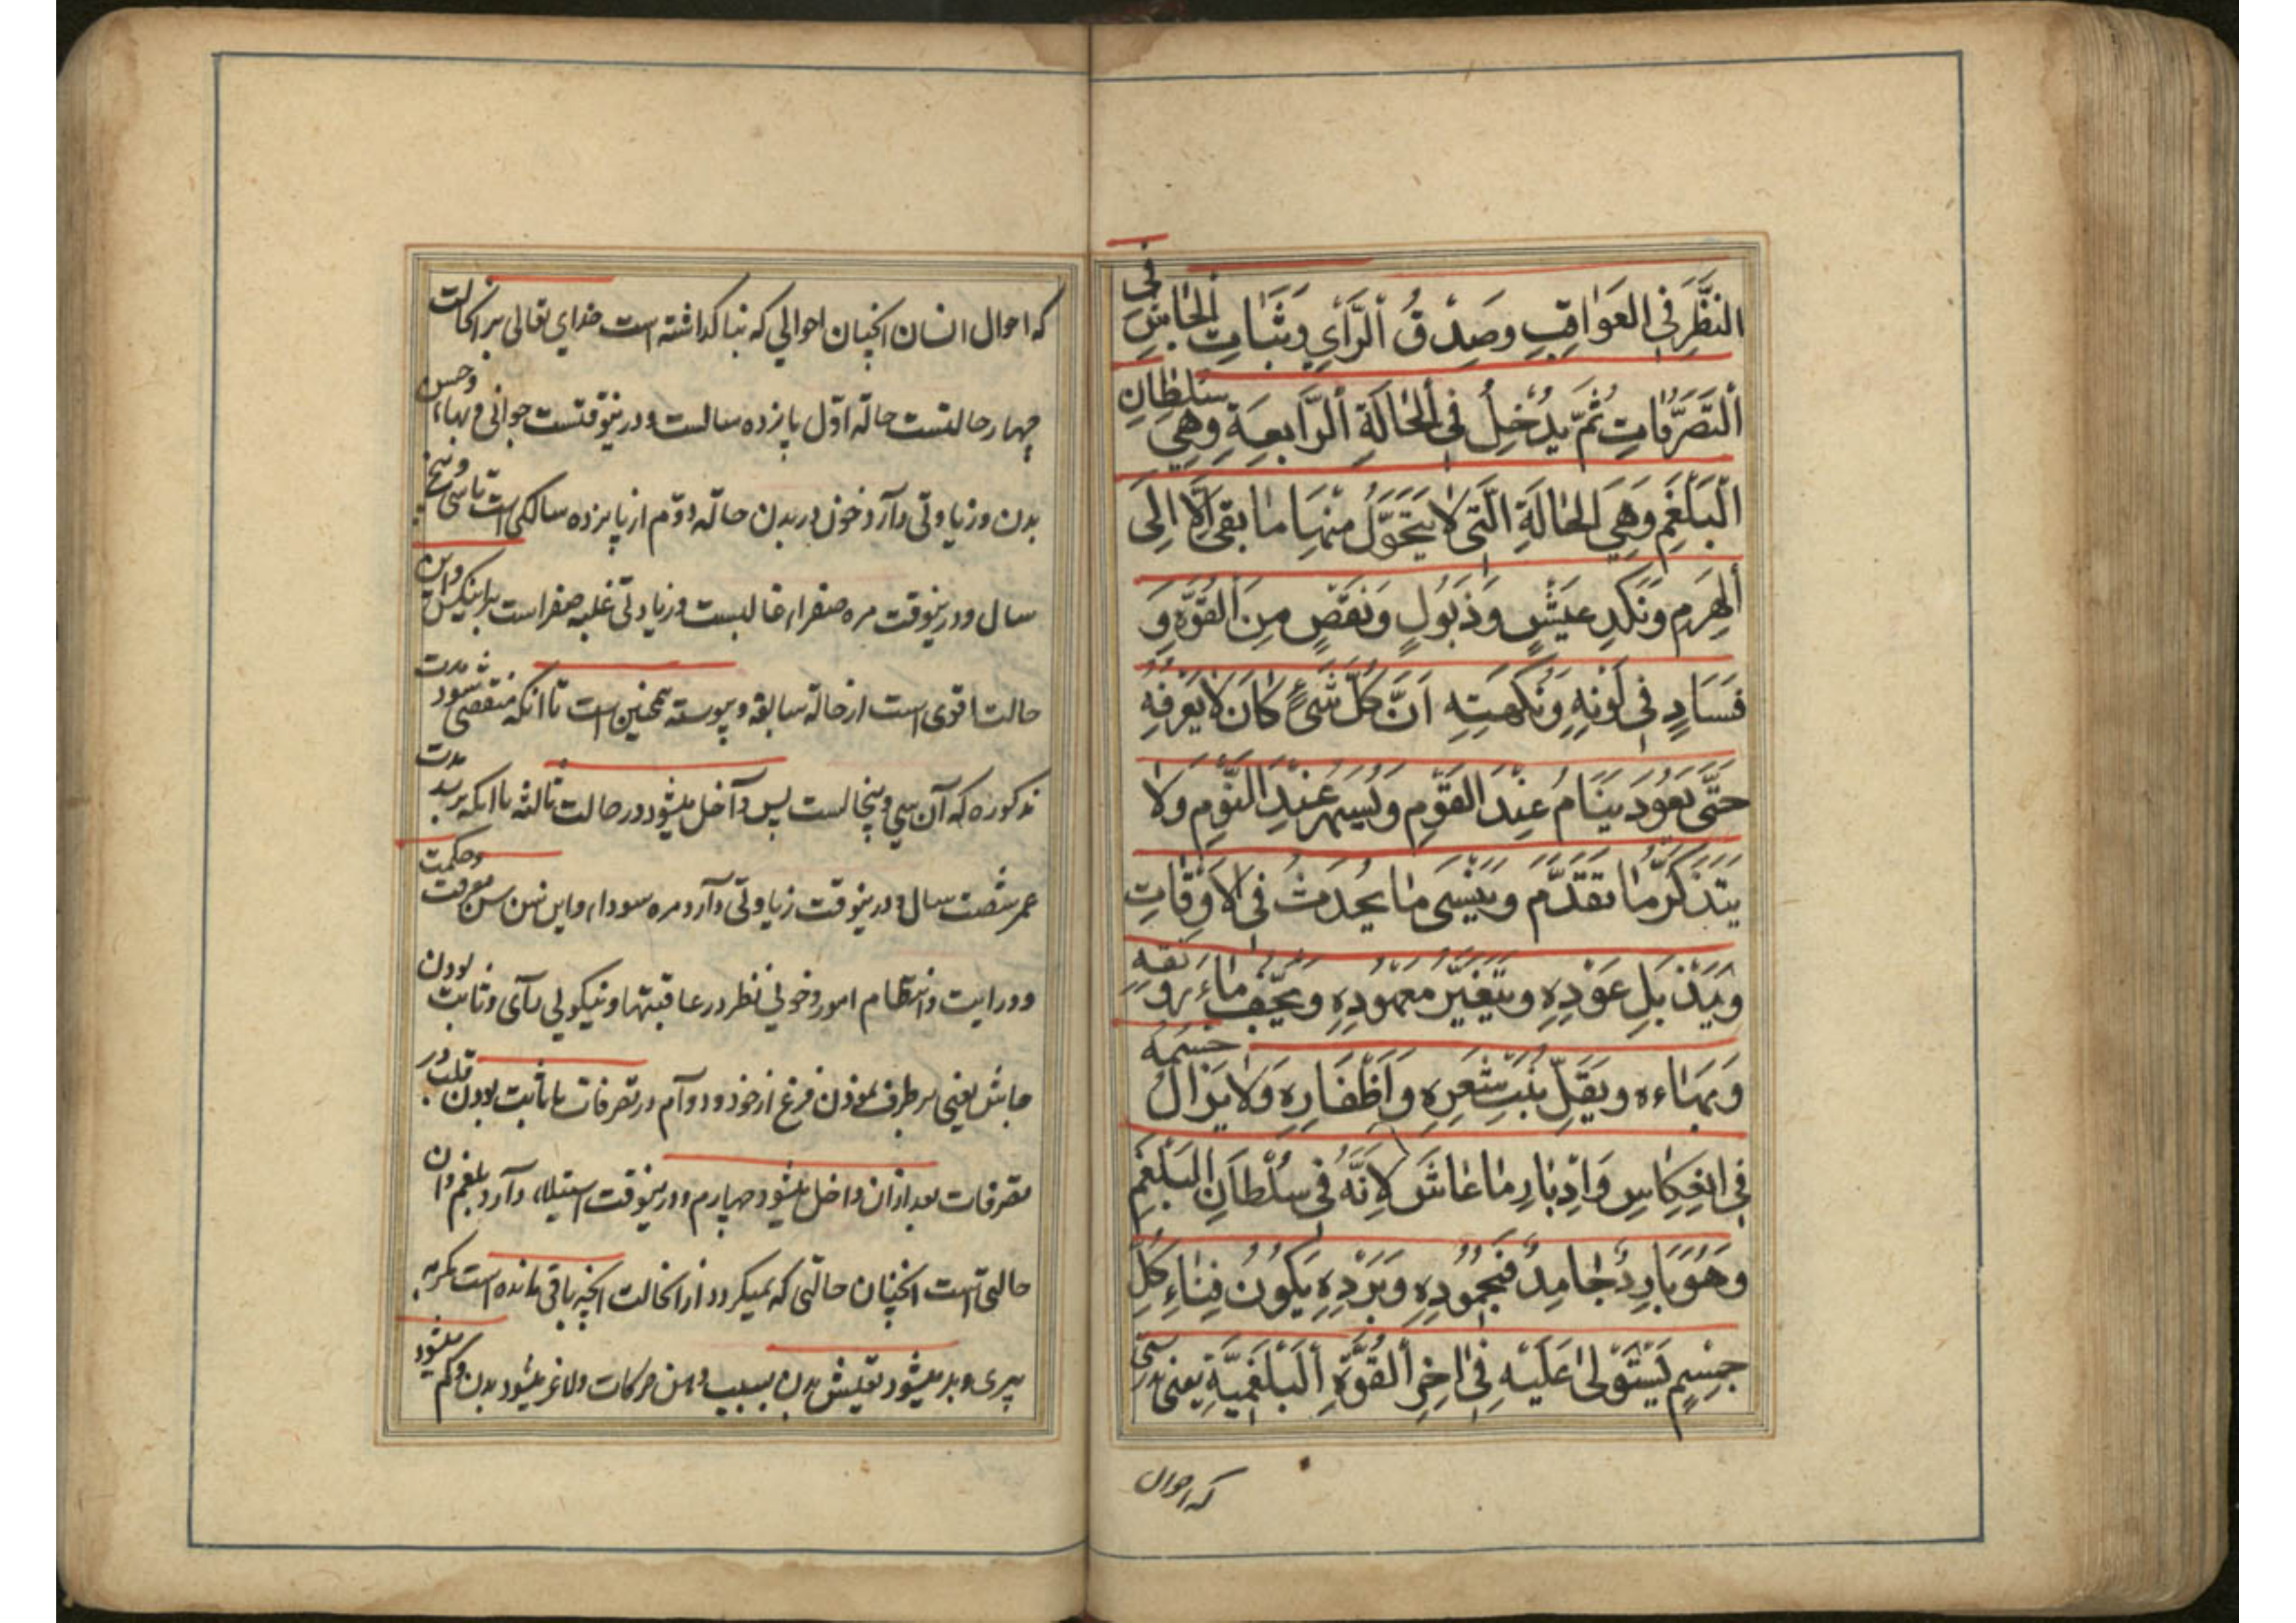 النَّظَرِ فِی العَوَاقِبِ وَصِدْقُ اَلرَّأيِ وَثَبَاتِ الجَاشِ فی
اَلتَّصَرُّفَاتِ ثُمَّ يَدْخُلُ فِی اَلحَالَةِ اَلرَّابِعَةِ وَهِيَ سُلطَانِ
الْبَلْغَمِ وَهِيَ الحَالَةِ الَّتِی لَا يَتَحَوَّلُ مِنْهَا مَا بَقِیَ اِلَّا اِلَی
اَلهِرَمِ وَنَكَدِ عَيْشٍ وَذَبُولٍ وَنَقْصٍ مِنَ القُوَّةِ وَ
فَسَادٍ فِی لَونِهِ وَنَكْهَتِهِ اَنَّ كُلَّ شَیْءٍ كَانَ لَا يَعْرِفُهُ
حَتَّی يَعُودَ يَنَامُ عِنْدَ القَوْمِ وَيَسْهَرُ عِنْدَ النَّوْمِ وَلَا
يَتَذَكَّرُ مَا تَقَدَّمَ وَيَنْسَی مَا يَحْدُثُ فِی الاَوْقَاتِ
وَيَذْبَلُ عَوْدِهِ وَيَتَغَيَّرُ مَعهُودِهِ وَيَجِفُّ مَاءِ رونقه
وَبَهَاءه وَيَقِلُّ نَبْتِ شَعرِهِ وَاَظْفَارِهِ وَلَا يَزَالُ جِسمُهُ
فِی انعِكَاسِ وَادْبَارِ مَا عَاشَ لِاَنَّهُ فِی سُلْطَانِ البَلْغَمِ
وَهُوَ بَارِدٌ جَامِدٌ فَبِجُمُودِهِ وَبَرْدِهِ يَكُونُ فَنَاءِ كُلِّ
جِسْمٍ يَسْتَوْلِی عَلَيْهِ فِی اخِرِ اَلقُوَّةِ اَلبَلْغَمِيَّةِ یعنی
که احوال
که احوال انسان انچنان احوالی که بنا کذاشته است خدای تعالی بر انحالت
چهار حالتست حاله اوّل پانزده سالست ودرینوقتست جوانی وبهاء وحسن
بدن وزیادتی دآرد خون در بدن حاله دوّم از پانزده سالکی است تا سی وپنج
سال ودرینوقت مره صفراء غالبست وزیادتی غلبه صفراست واین
حالت اقوی است از حاله سابقه وپیوسته همچنین است تا آنکه منقضی شود مدت
مذکوره که آن سی وپنجالست پس داخل میشود در حالت ثالثه تا آنکه برسد مدت
عمر شصت سال ودرینوقت زیادتی دآرد مره سوداء واین سن سن معرفت وحکمت
ودرایت وانتظام امور وخوبی نظر در عاقبتها ونیکوئی رآی وثابت بودن
جاش یعنی بر طرف نمودن فزع از خود ودوآم در تصرفات یا ثابت بودن قلب در
تصرفات بعد ازان داخل میشود چهارم ودرینوقت استیلاء دآرد بلغم وان
حالتی است انچنان حالتی که نمیکردد از انحالت انچه باقی مانده است مکر به
پیری وبد میشود تعیش بدن بسبب وهن حرکات ولاغر میشود بدن وکم میشود